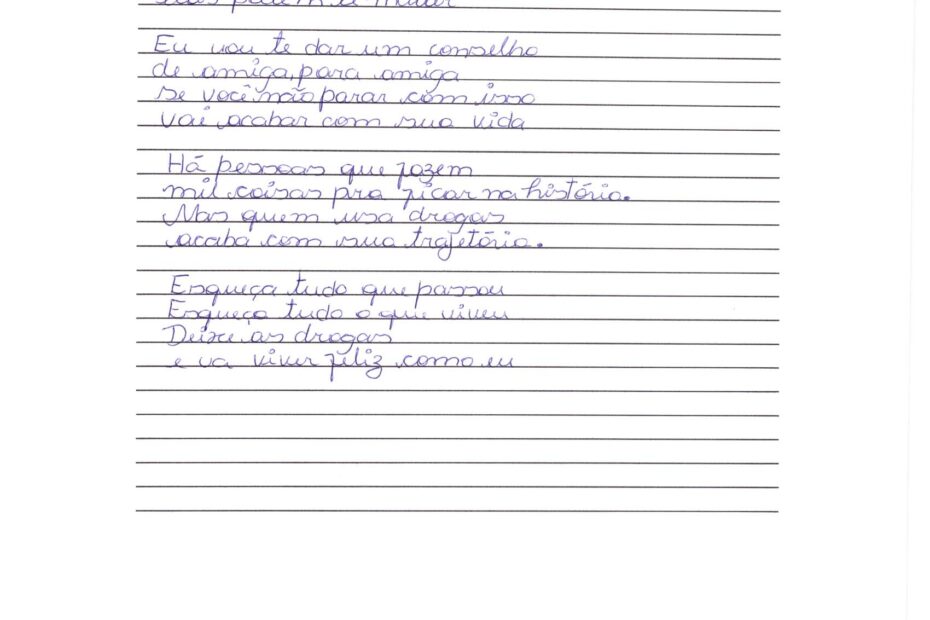 Eu vou te dar um conselho
de amiga, para amiga
se você não parar com isso
vai acabar com sua vida
Há pessoas que fazem
mil coisas pra ficar na história.
Mas quem usa drogas
acaba com sua trajetória.
Esqueça tudo que passou
Esqueça tudo o que viveu
Deixe as drogas
e va viver feliz como eu